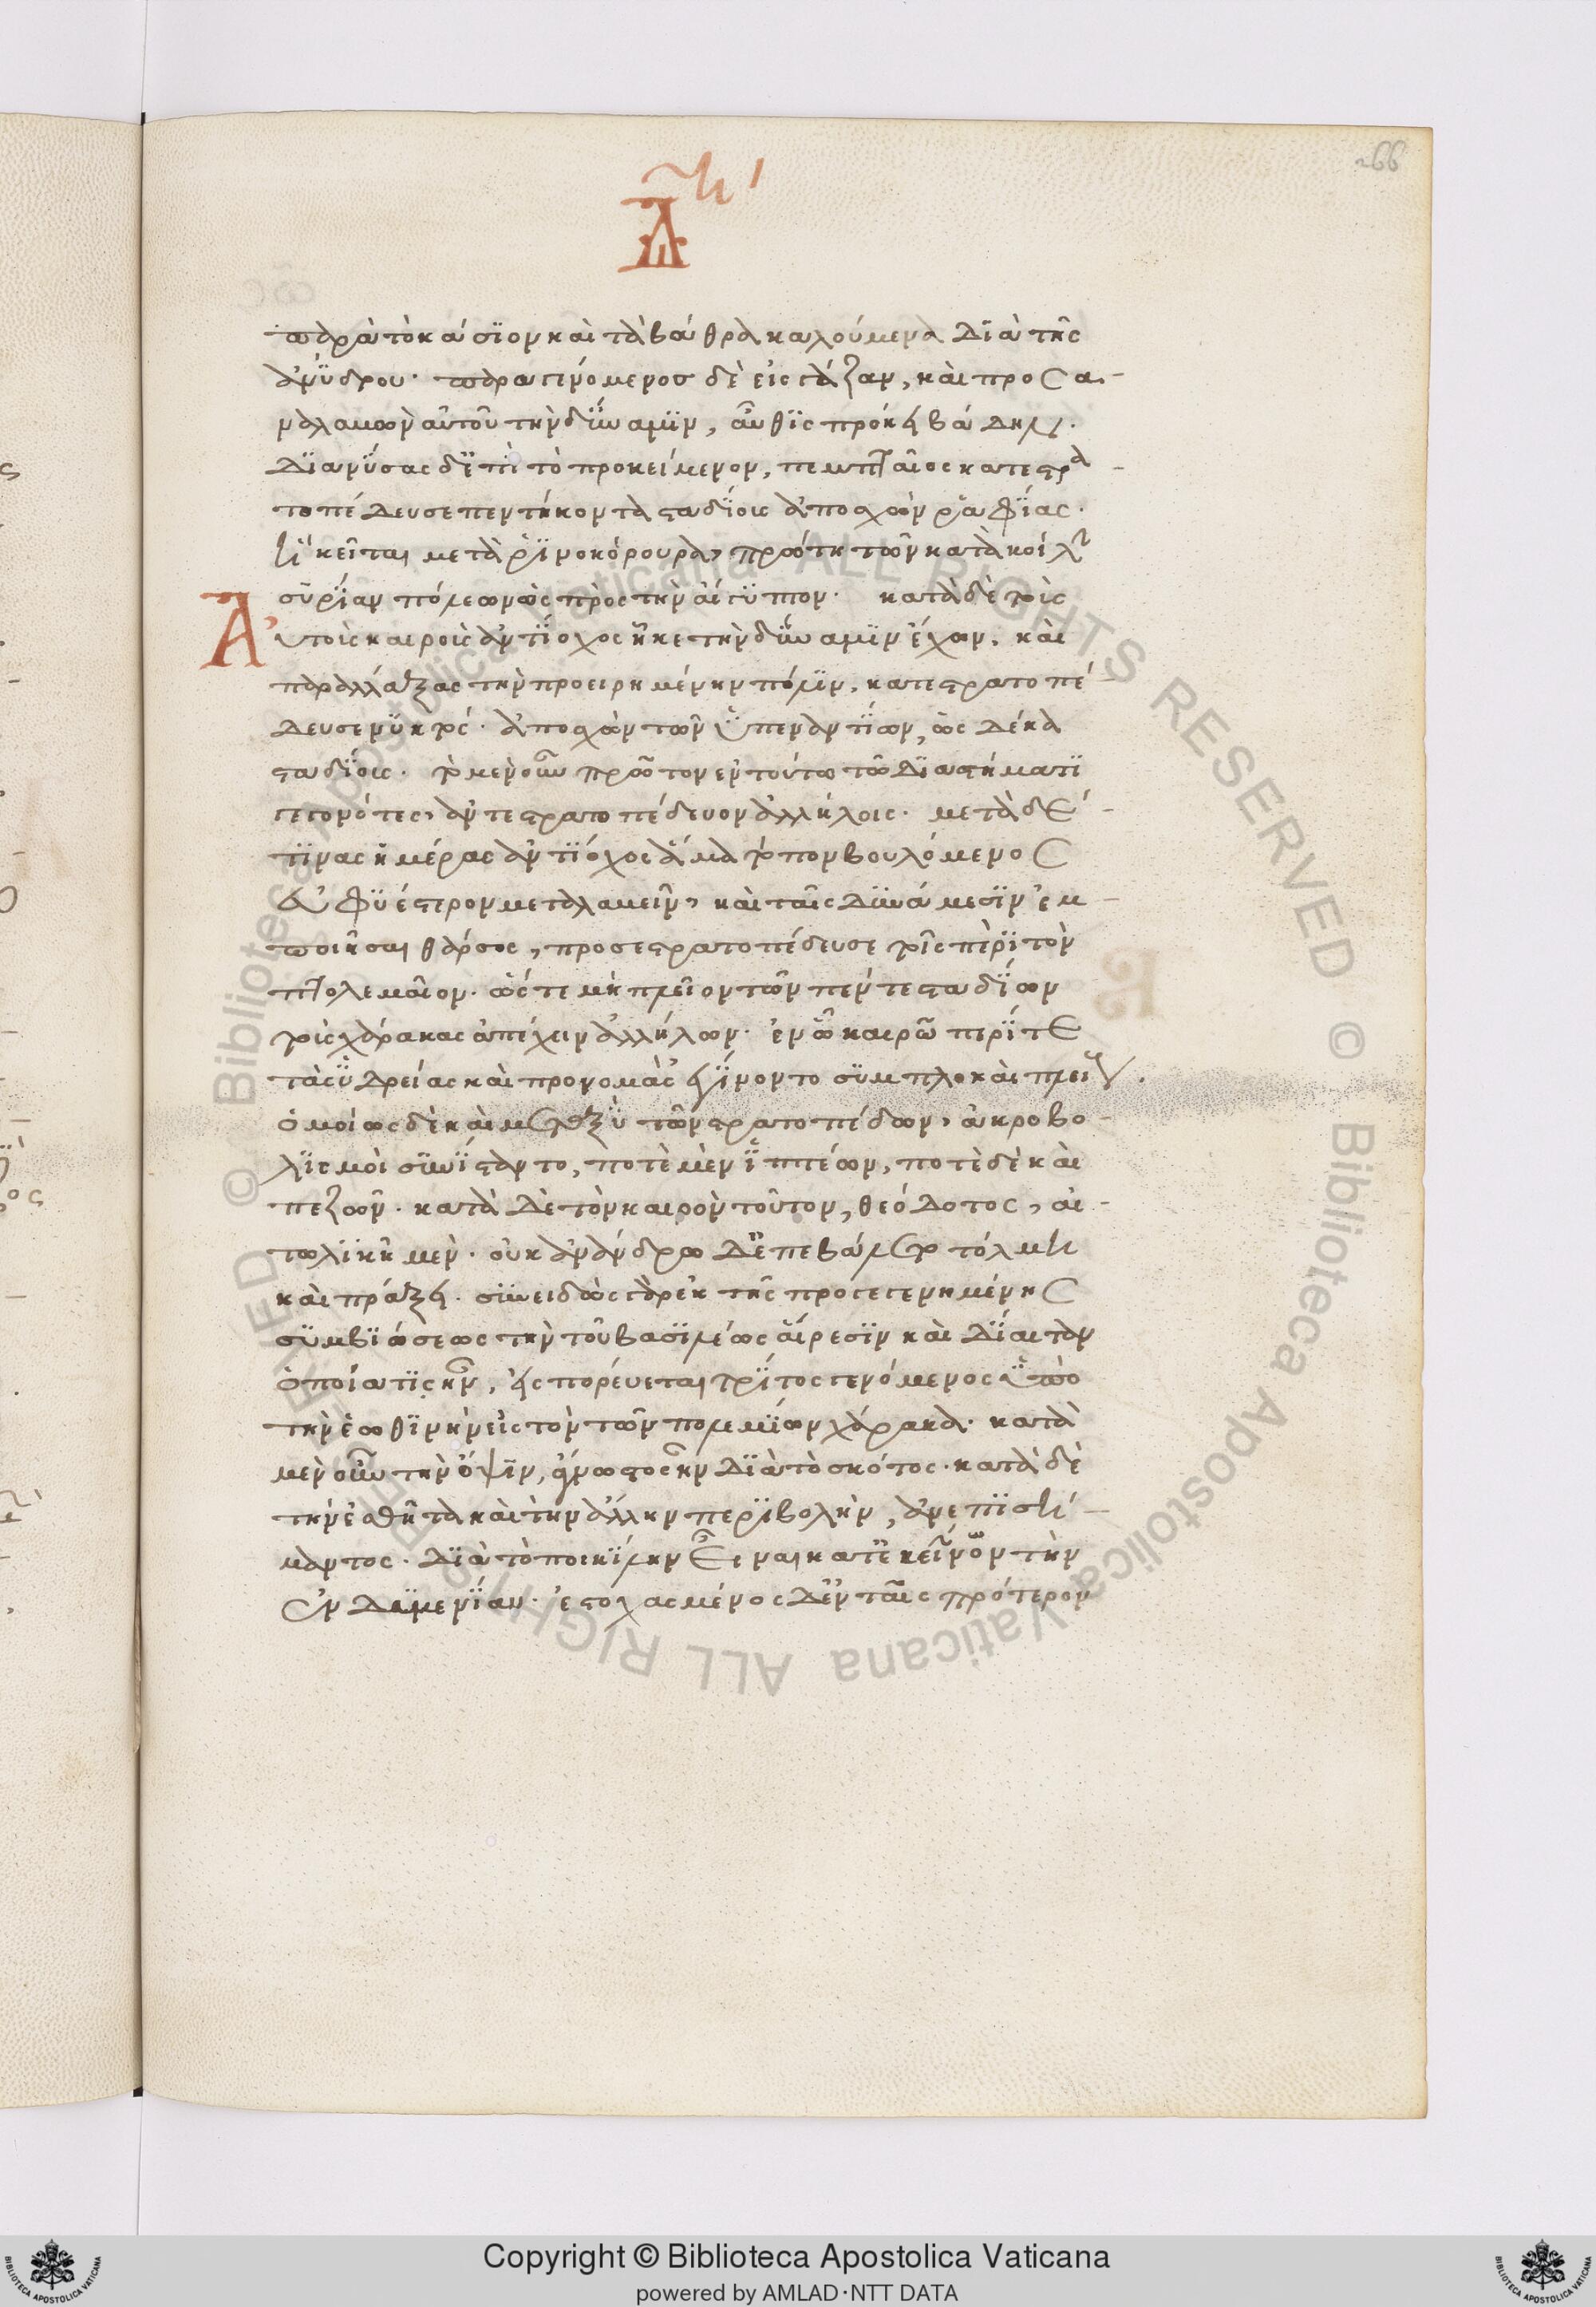 266
παρὰ τὸ κάσϊον καὶ τὰ βάθρα καλούμενα διὰ τῆς
ἀνύδρου· παραγενόμενος δὲ εἰς γάζαν, καὶ προσα-
ναλαμὼν αὐτοῦ τὴν δύναμιν, αὖθις προήει βάδην.
διανύσας δ' ἐπὶ τὸ προκείμενον, πεμπταῖος κατεστρα-
τοπέδευσε πεντήκοντα σταδίοις ἀποσχὼν ῥαφίας·
ἣ κεῖται μετὰ ῥινοκόρουρα, πρώτη τῶν κατὰ κοίλην
συρίαν πόλεων ὡς πρὸς τὴν αἴγυπτον· κατὰ δὲ τοὺς
Αὐτοὺς καιροὺς ἀντίοχος ἧκε τὴν δύναμιν ἔχων. καὶ
παραλλάξας τὴν προειρημένην πόλιν, κατεστρατοπέ
δευσε νυκτός· ἀποσχὼν τῶν ὑπεναντίων, ὡς δέκα
σταδίοις. τὸ μὲν οὖν πρῶτον ἐν τούτω τῶ διαστήματι
γεγονότες, ἀντεστρατοπέδευον ἀλλήλοις· μετὰ δέ-
τινας ἡμέρας ἀντίοχος ἅμα τόπον βουλόμενος
εὐφυέστερον μεταλαμεῖν, καὶ ταῖς δυνάμεσιν ἐμ-
ποιῆσαι θάρσος, προσεστρατοπέδευσε τοῖς περὶ τὸν
πτολεμαῖον· ὥστε μὴ πλεῖον τῶν πέντε σταδίων
τοὺς χάρακας ἀπέχειν ἀλλήλων· ἐν ὧ καιρῶ περί τε
τὰς ὑδρείας καὶ προνομὰς ἐγίνοντο συμπλοκαὶ πλείους.
ὁμοίως δὲ καὶ μεταξὺ τῶν στρατοπέδων, ἀκροβο-
λισμοὶ συνίσταντο, ποτὲ μὲν ἱππέων, ποτὲ δὲ καὶ
πεζῶν· κατὰ δὲ τὸν καιρὸν τοῦτον, θεόδοτος, αἰ-
τωλικῆ μὲν· οὐκ ἀνάνδρω δ' ἐπεβάλετο τόλμη
καὶ πράξει. συνειδὼς γὰρ ἐκ τῆς προγεγενημένης
συμβιώσεως τὴν τοῦ βασιλέως αἵρεσιν καὶ δίαιταν
ὁποία τις ἦν, εἰσπορεύεται τρίτος γενόμενος ὑπὸ
τὴν ἑωθινὴν εἰς τὸν τῶν πολεμίων χάρακα· κατὰ
μὲν οὖν τὴν ὄψιν, ἄγνωστος ἦν διὰ τὸ σκότος. κατὰ δὲ
τὴν ἐσθῆτα καὶ τὴν ἄλλην περιβολὴν, ἀνεπισή-
μαντος. διὰ τὸ ποικίλην εἶναι κατ' ἐκεῖνον τὴν
ἐνδυμενίαν· ἐστοχασμένος δ' ἐν ταῖς πρότερον
Copyright © Biblioteca Apostolica Vaticana
powered by AMLAD·NTT DATA